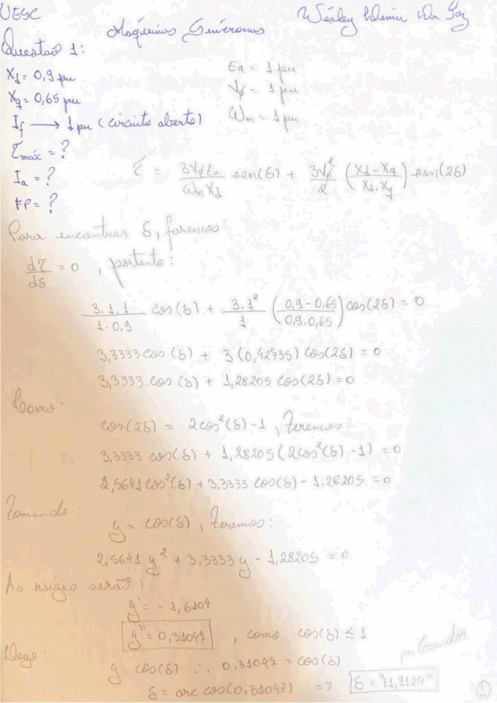 UESC
Máquinas Síncronas
Questão 1:
X_d = 0,9 pu
X_q = 0,65 pu
I_f → 1 pu (circuito aberto)
τ_máx = ?
I_a = ?
FP = ?
E_a = 1 pu
V_ϕ = 1 pu
ω_m = 1 pu
τ = 3V_ϕE_a/(ω_m X_d) sen(δ) + 3V_ϕ²/2 ((X_d - X_q)/(X_d.X_q)) sen(2δ)
Para encontrar δ, faremos:
dτ/dδ = 0 , portanto:
3.1.1/(1.0,9) cos(δ) + 3.1²/1 ((0,9 - 0,65)/(0,9.0,65)) cos(2δ) = 0
3,3333 cos(δ) + 3(0,42735) cos(2δ) = 0
3,3333.cos(δ) + 1,28205 cos(2δ) = 0
Como:
cos(2δ) = 2cos²(δ) - 1, teremos
3,3333 cos(δ) + 1,28205 (2cos²(δ) - 1) = 0
2,5641 cos²(δ) + 3,3333 cos(δ) - 1,28205 = 0
Tomando:
y = cos(δ), teremos:
2,5641 y² + 3,3333 y - 1,28205 = 0
As raízes serão:
y' = - 1,6104
y'' = 0,31047 , como cos(δ) ≤ 1
Logo:
y = cos(δ) ∴ 0,31047 = cos(δ)
δ = arc cos(0,31047) => δ = 71,9124°
1